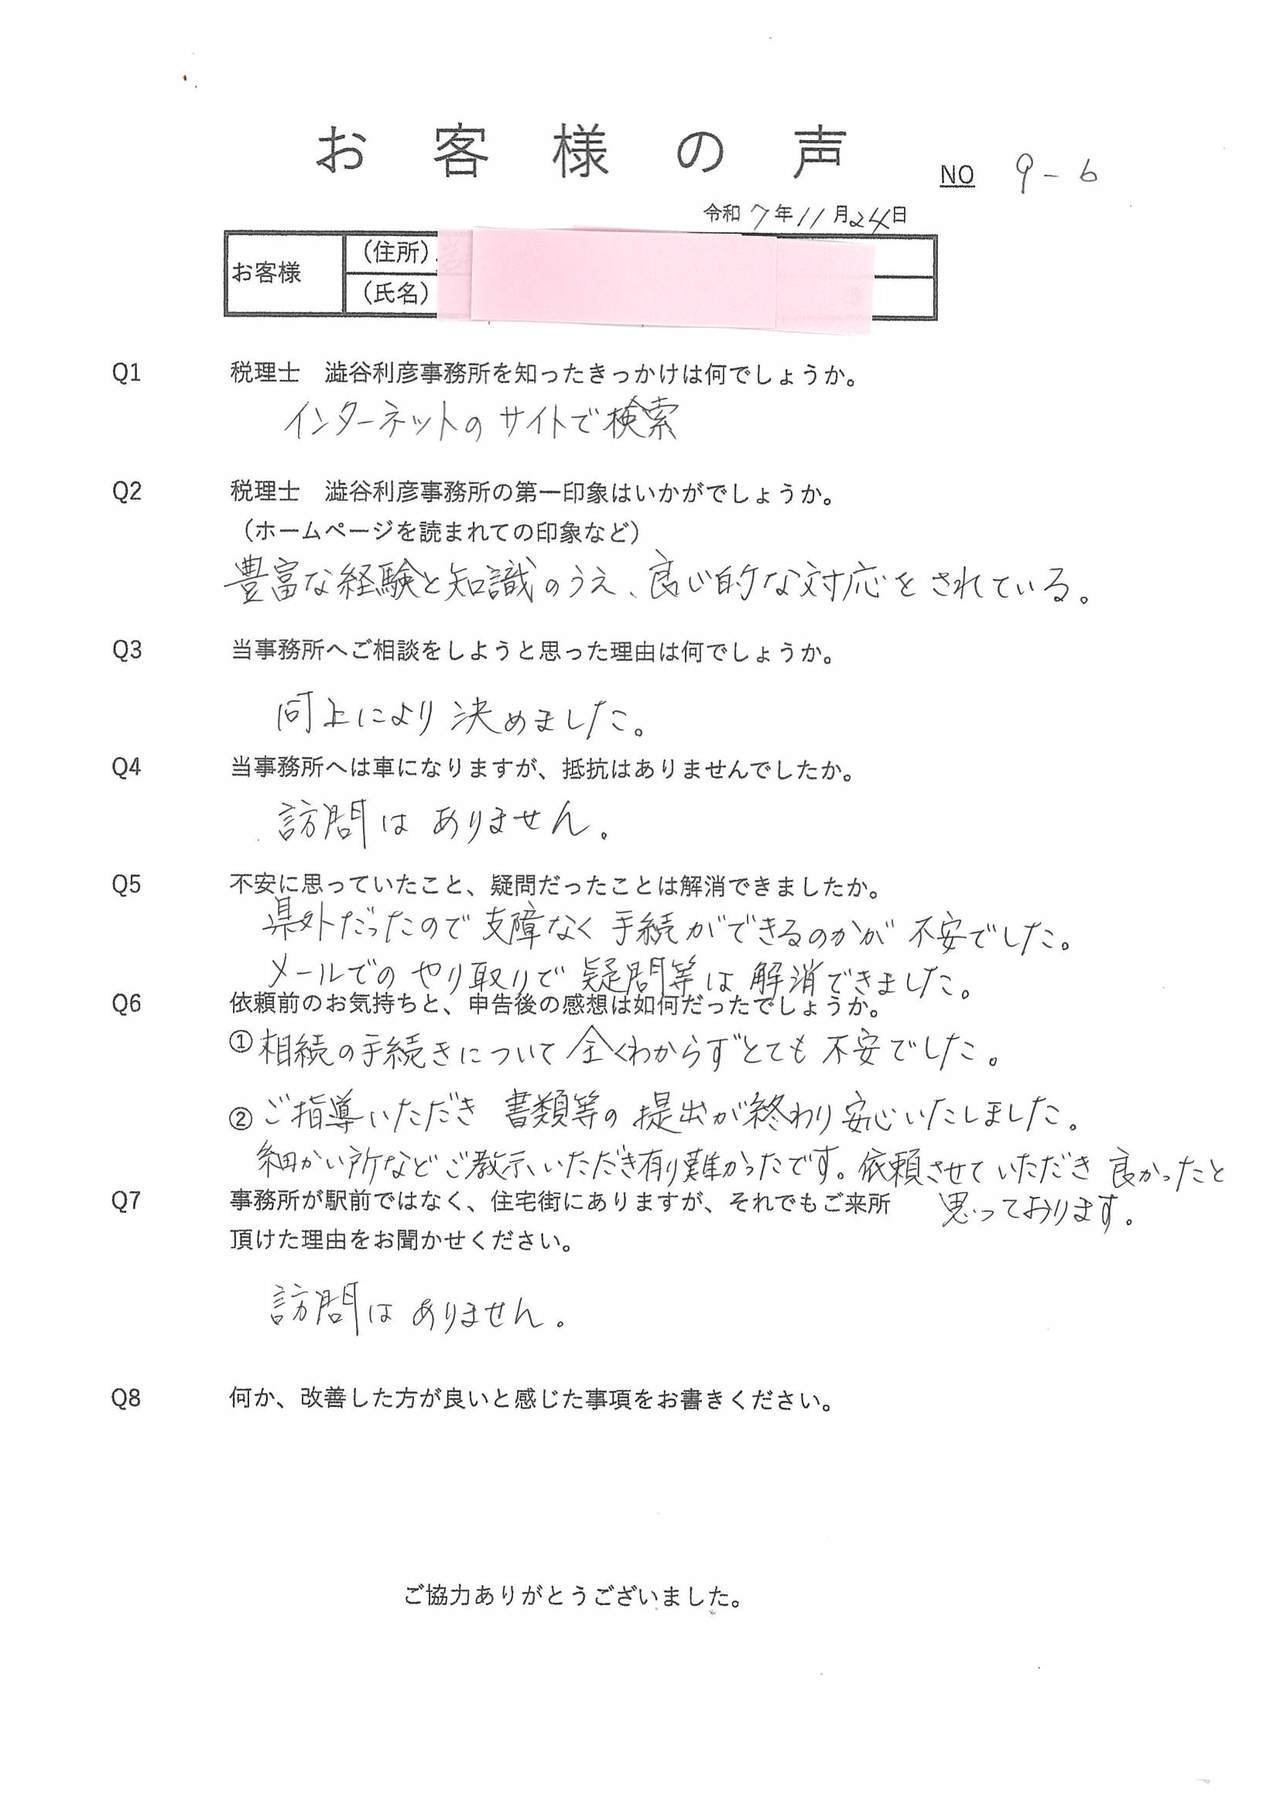 お客様の声
NO 9-6
令和7年11月24日
お客様
（住所）
（氏名）
Q1 税理士　澁谷利彦事務所を知ったきっかけは何でしょうか。
インターネットのサイトで検索
Q2 税理士　澁谷利彦事務所の第一印象はいかがでしょうか。
（ホームページを読まれての印象など）
豊富な経験と知識のうえ、良心的な対応をされている。
Q3 当事務所へご相談をしようと思った理由は何でしょうか。
同上により決めました。
Q4 当事務所へは車になりますが、抵抗はありませんでしたか。
訪問はありません。
Q5 不安に思っていたこと、疑問だったことは解消できましたか。
県外だったので支障なく手続ができるのかが不安でした。
メールでのやり取りで疑問等は解消できました。
Q6 依頼前のお気持ちと、申告後の感想は如何だったでしょうか。
①相続の手続きについて全くわからずとても不安でした。
②ご指導いただき書類等の提出が終わり安心いたしました。
細かい所などご教示いただき有り難かったです。依頼させていただき良かったと
思っております。
Q7 事務所が駅前ではなく、住宅街にありますが、それでもご来所
頂けた理由をお聞かせください。
訪問はありません。
Q8 何か、改善した方が良いと感じた事項をお書きください。
ご協力ありがとうございました。